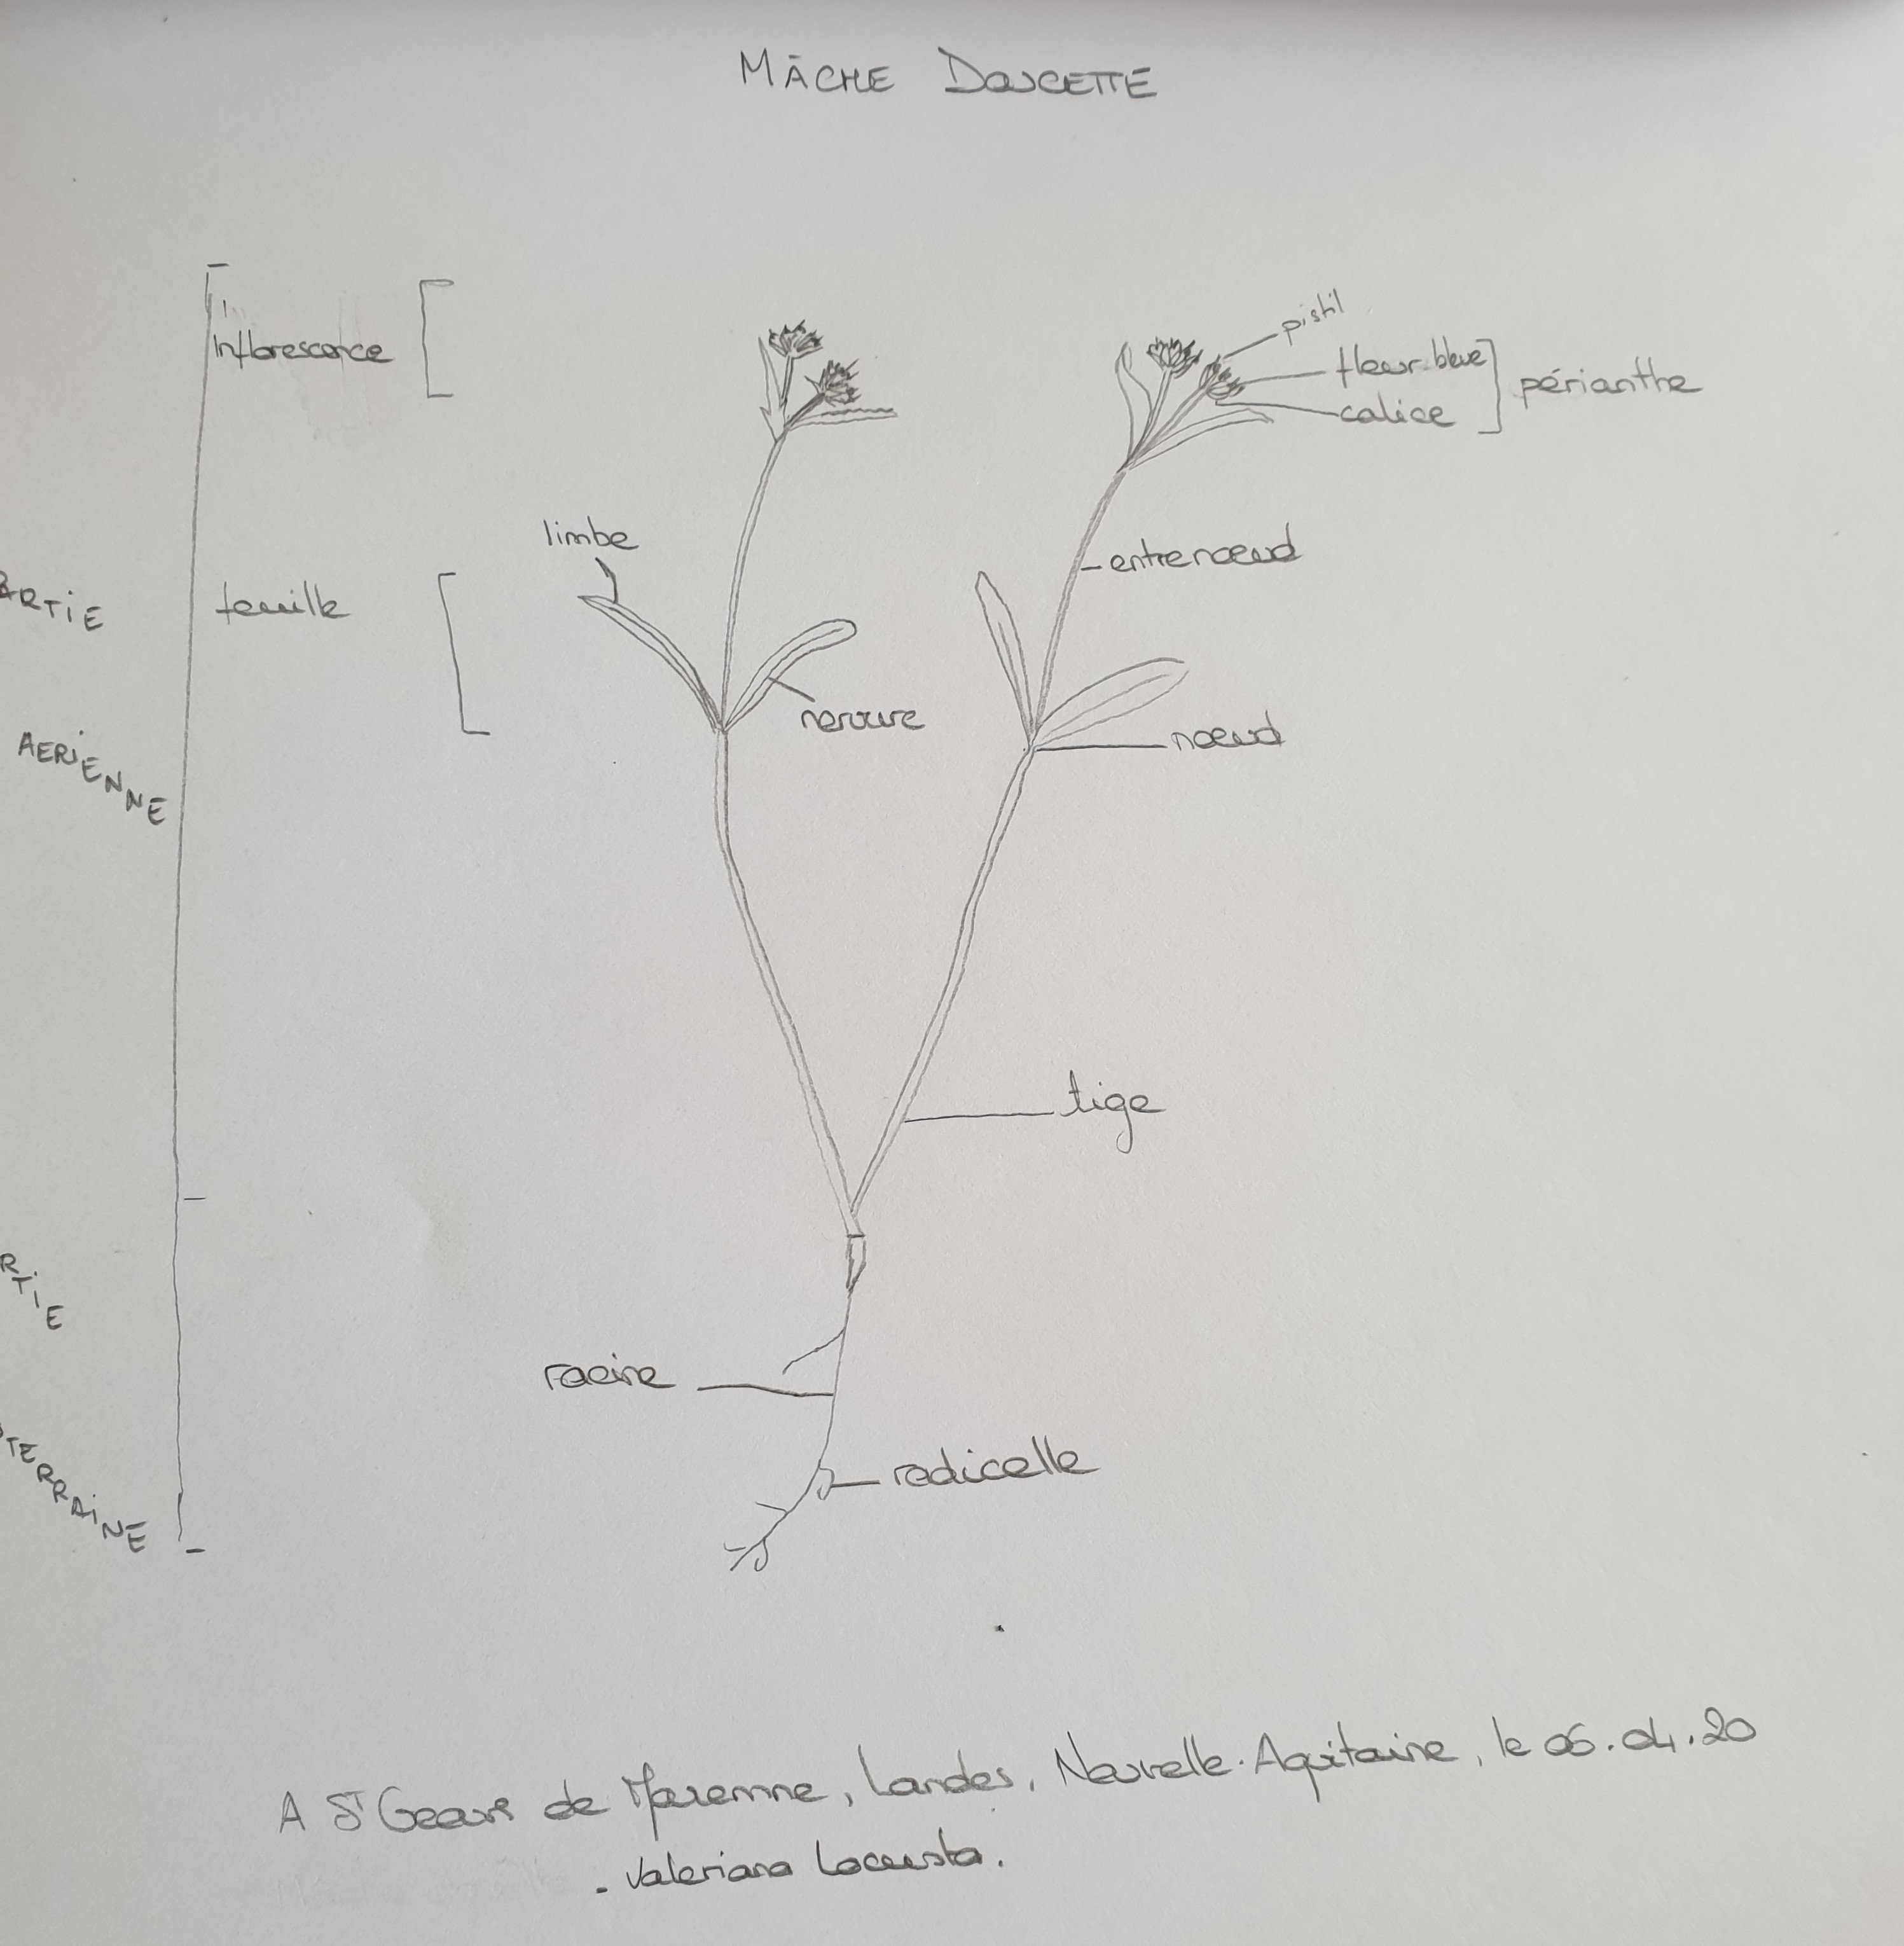 MÂCHE DOUCETTE
Inflorescence
pistil
fleur bleue
calice
périanthe
limbe
entrenoeud
ARTIE
feuille
nervure
noeud
AERIENNE
tige
RTIE
racine
radicelle
TERRAINE
A St Geours de Maremne, Landes, Nouvelle-Aquitaine, le 06.04.20
- Valeriana Locusta.